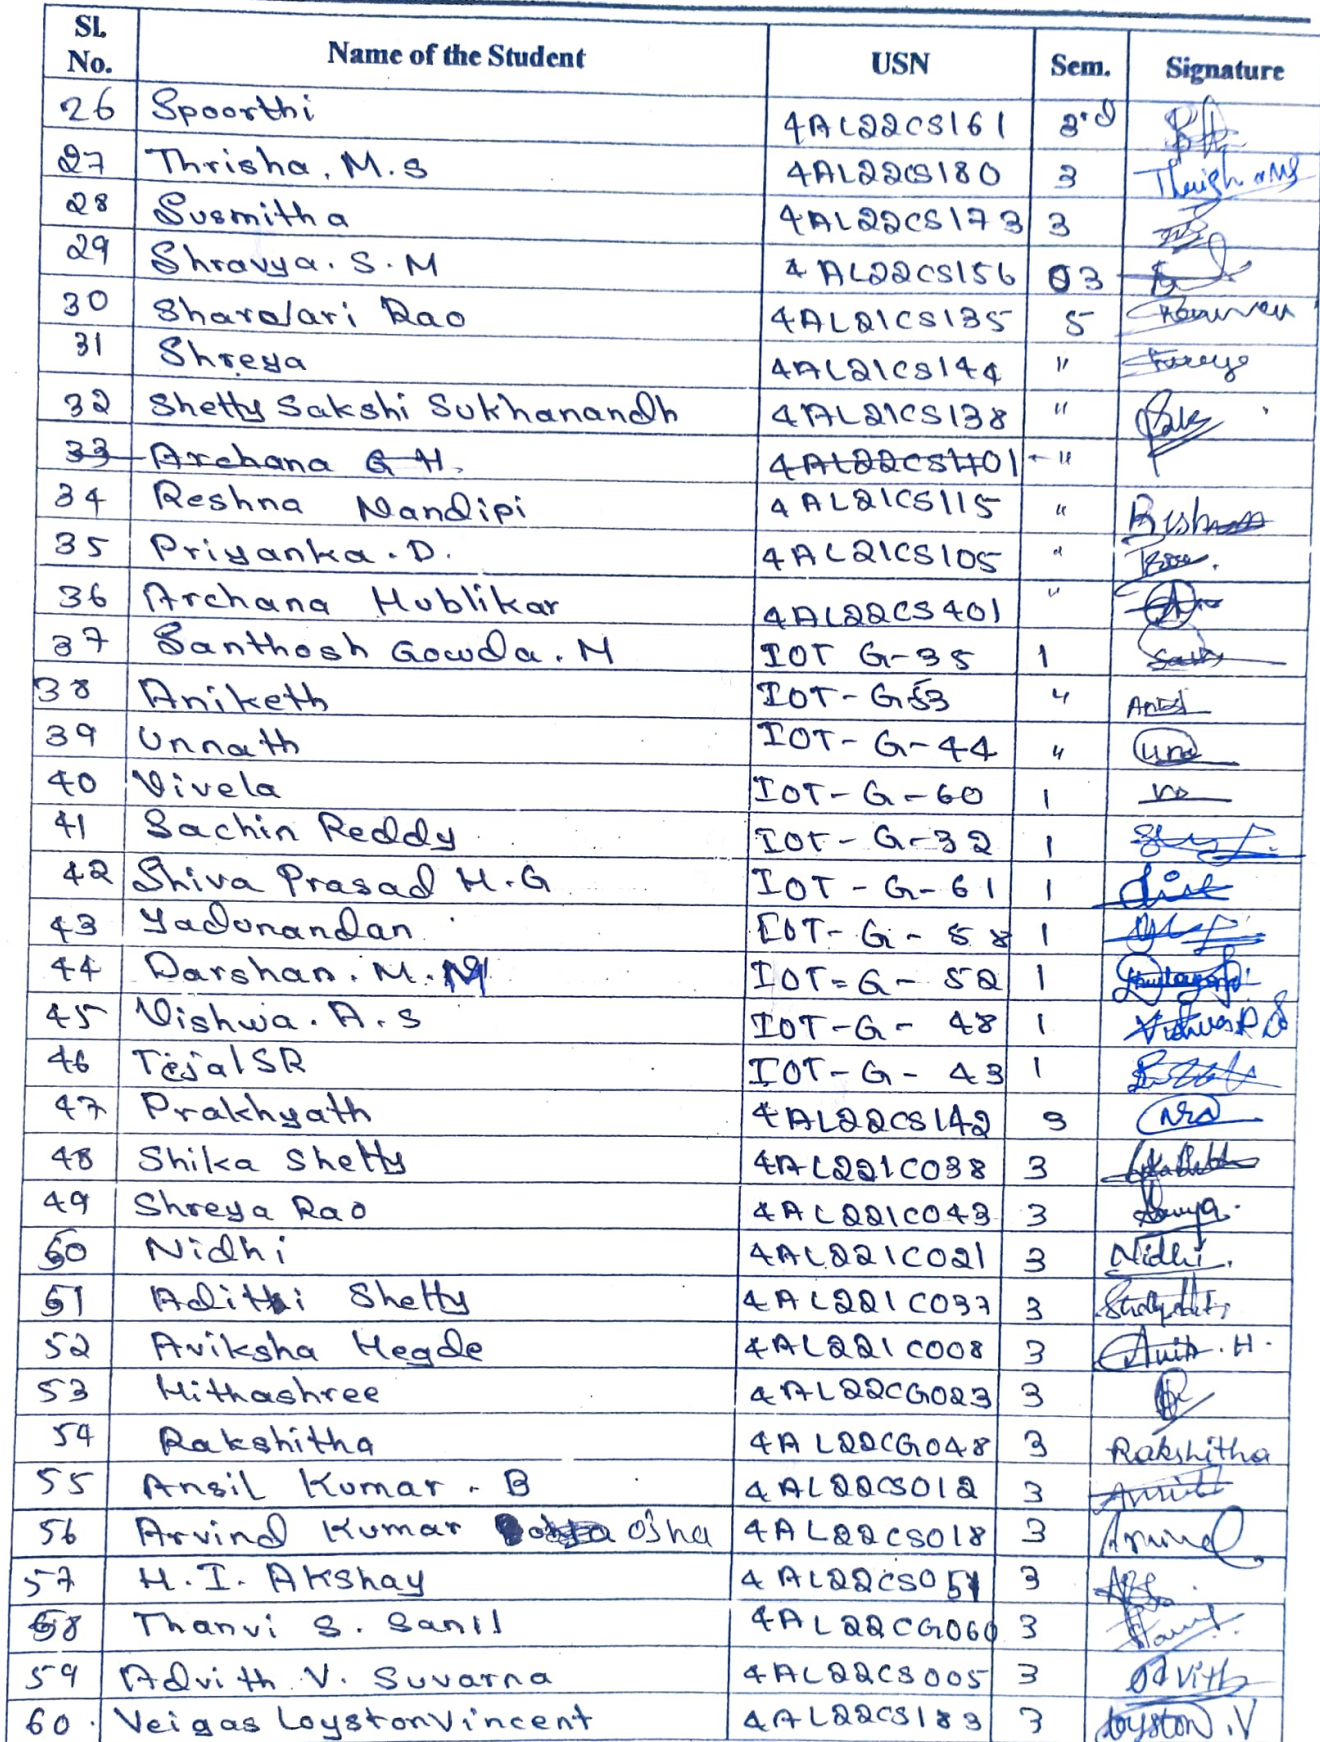 SL No. Name of the Student USN Sem. Signature
26 Spoorthi 4AL22CS161 3rd
27 Thrisha. M.S 4AL22CS180 3
28 Susmitha 4AL22CS173 3
29 Shravya. S. M 4AL22CS156 03
30 Sharalari Rao 4AL21CS135 5
31 Shreya 4AL21CS144 "
32 Shetty Sakshi Sukhanandh 4AL21CS138 "
33 Archana G H. 4AL22CS401 "
34 Reshna Nandipi 4AL21CS115 "
35 Priyanka. D. 4AL21CS105 "
36 Archana Hublikar 4AL22CS401 "
37 Santhosh Gowda. M IOT G-35 1
38 Aniketh IOT-G53 "
39 Unnath IOT-G-44 "
40 Vivela IOT-G-60 1
41 Sachin Reddy IOT-G-32 1
42 Shiva Prasad H.G IOT-G-61 1
43 Yadunandan IOT-G-58 1
44 Darshan. M. M IOT-G-52 1
45 Vishwa. A. S IOT-G-48 1
46 Tejal SR IOT-G-43 1
47 Prakhyath 4AL22CS142 3
48 Shika Shetty 4AL22IC038 3
49 Shreya Rao 4AL22IC043 3
50 Nidhi 4AL22IC021 3 Nidhi.
51 Adithi Shetty 4AL22IC037 3
52 Aviksha Hegde 4AL22IC008 3
53 Hithashree 4AL22CG023 3
54 Rakshitha 4AL22CG048 3 Rakshitha
55 Ansil Kumar. B 4AL22CS012 3
56 Arvind Kumar Ojha 4AL22CS018 3 Arvind
57 H. I. Akshay 4AL22CS051 3
58 Thanvi S. Sanil 4AL22CG060 3
59 Advith V. Suvarna 4AL22CS005 3 Advith
60. Veigas Loyston Vincent 4AL22CS183 3 Loyston. V